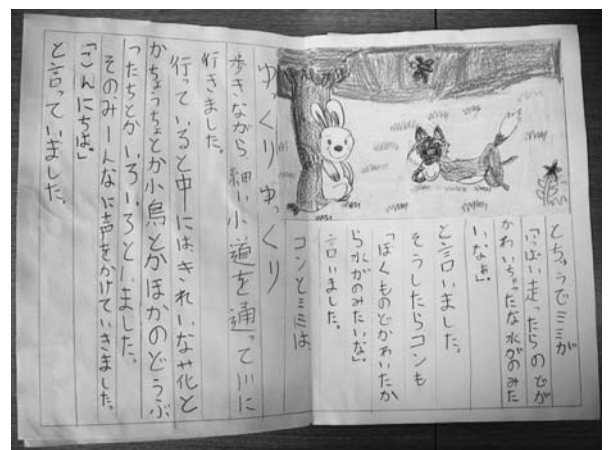 とちゅうでミミが
「いっぱい走ったらのどが
かわいちゃったな水がのみた
いなぁ」
と言いました。
そうしたらコンも
「ぼくものどかわいたか
ら水がのみたいな」
言いました。
コンとミミは、
ゆっくりゆっくり
歩きながら細い小道を通って川に
行きました。
行っていると中にはきれいな花と
かちょうちょとか小鳥とかほかのどうぶ
つたちとかいろいろといました。
そのみーんなに声をかけていきました。
「こんにちは。」
と言っていました。